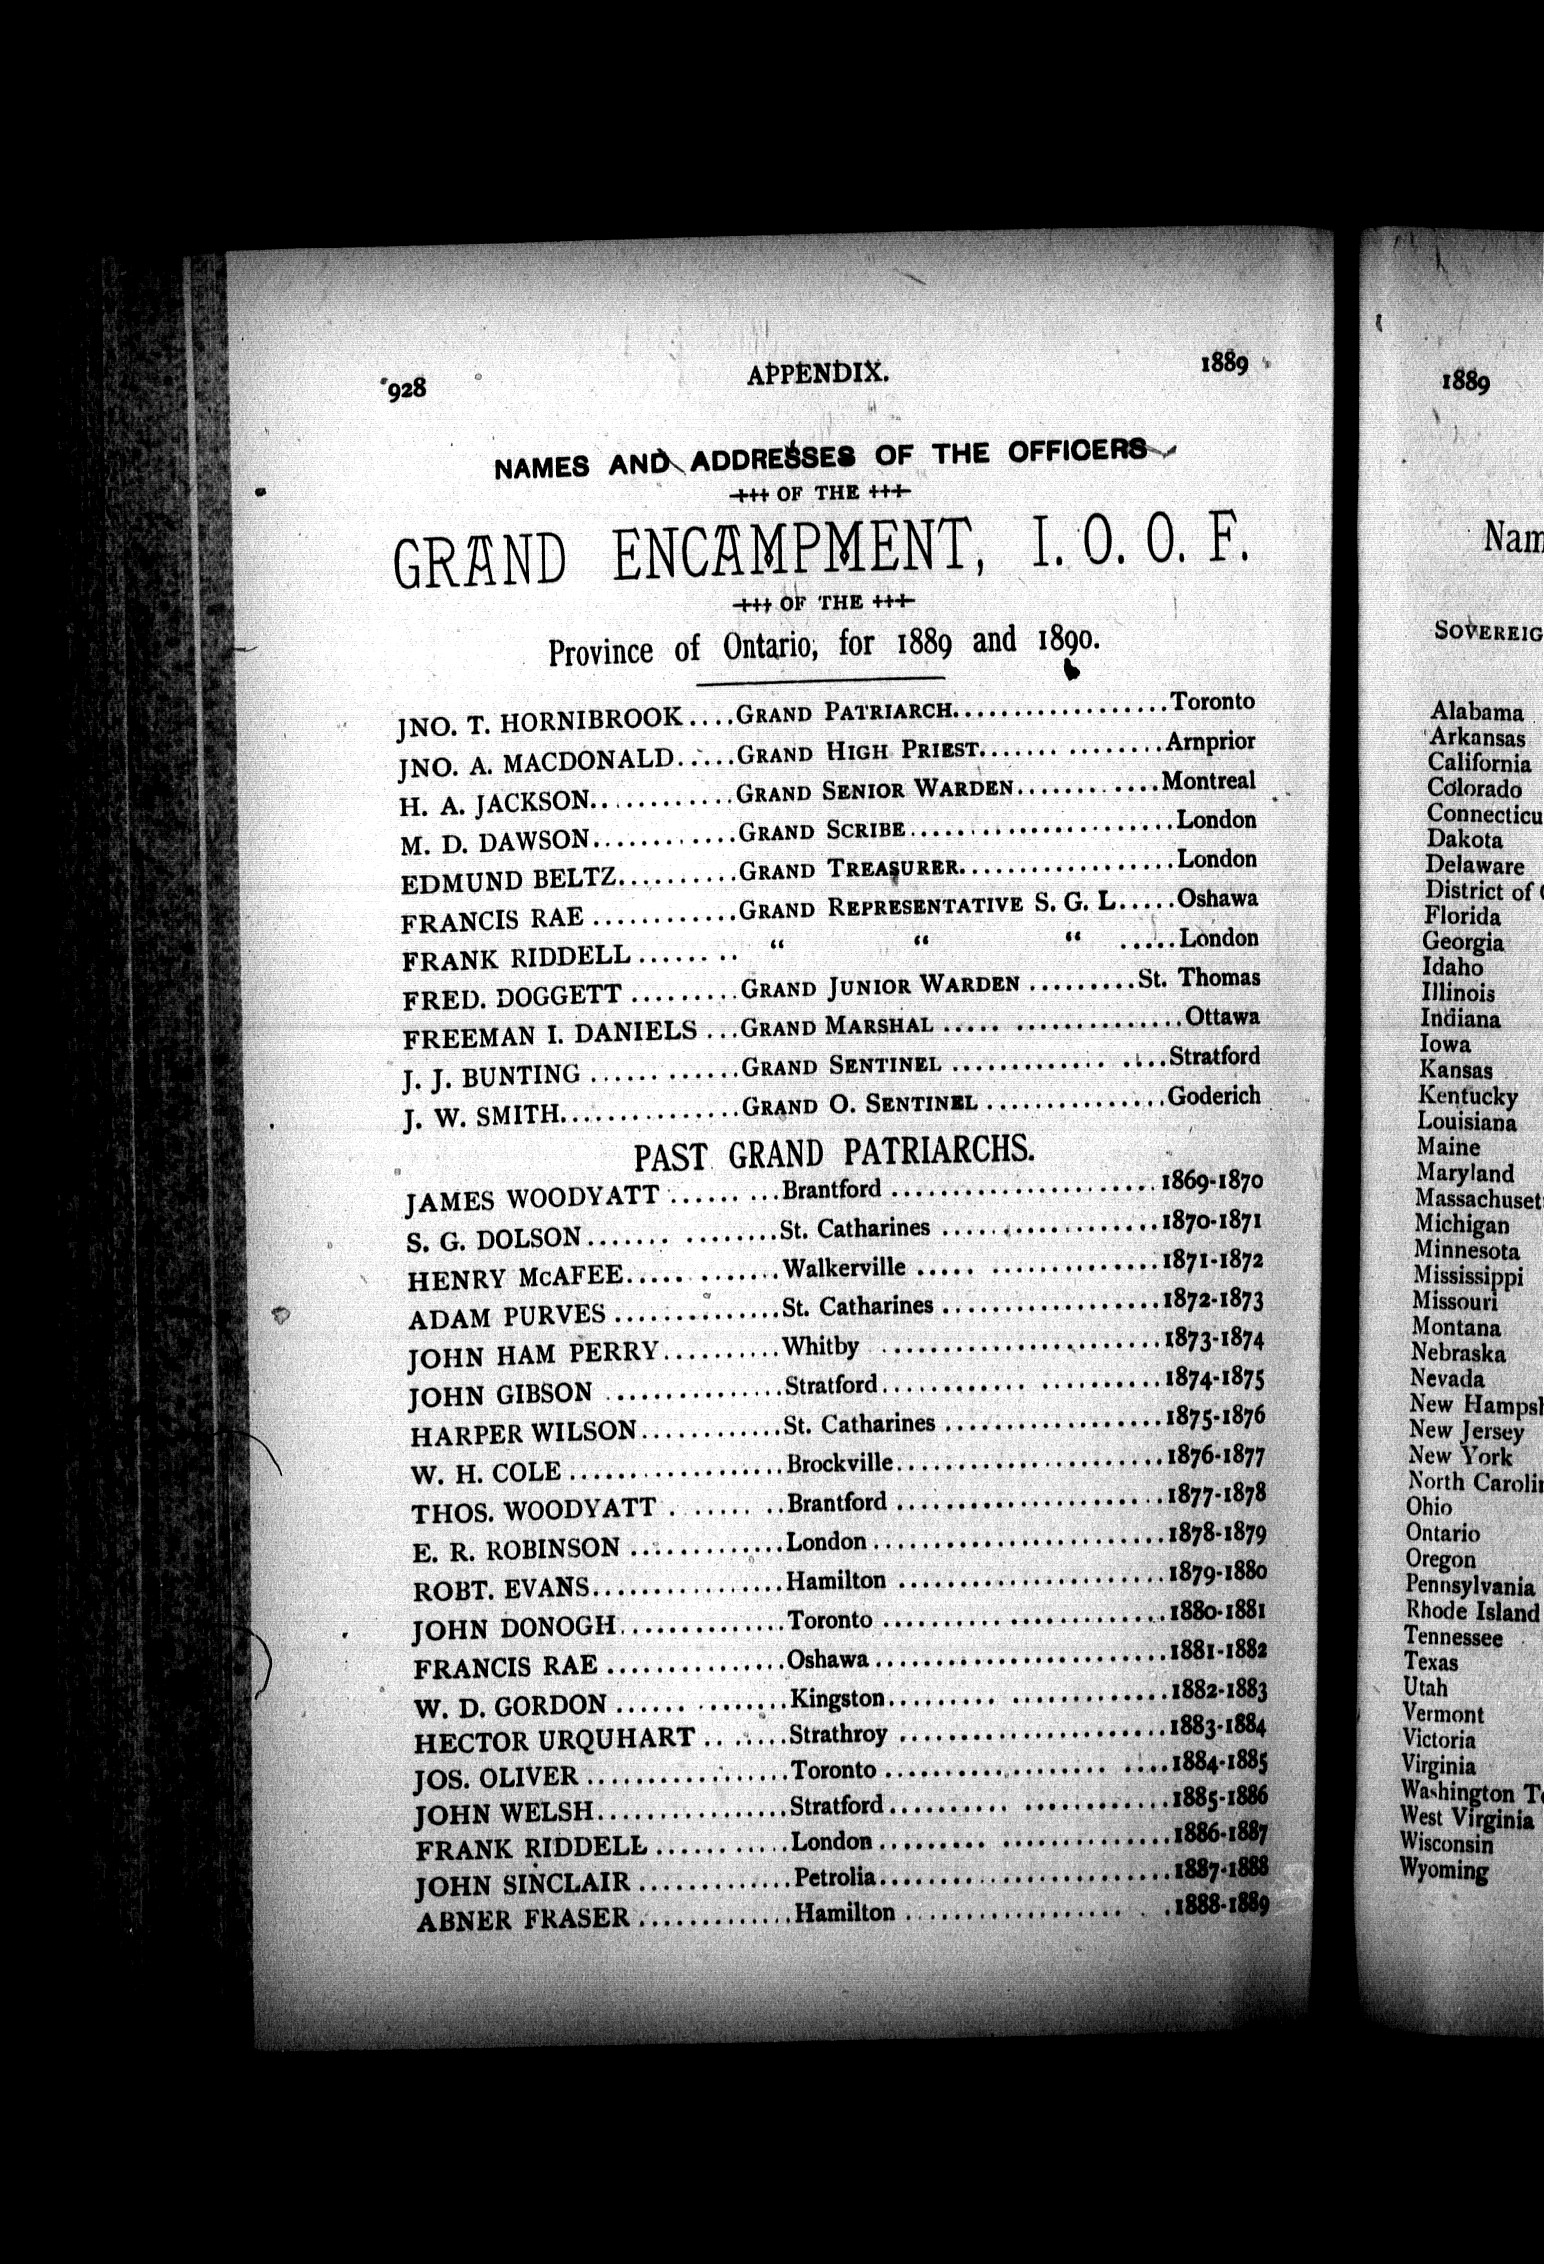 928 APPENDIX. 1889
NAMES AND ADDRESSES OF THE OFFICERS
OF THE
GRAND ENCAMPMENT, I. O. O. F.
OF THE
Province of Ontario, for 1889 and 1890.
JNO. T. HORNIBROOK....GRAND PATRIARCH..................Toronto
JNO. A. MACDONALD......GRAND HIGH PRIEST...............Arnprior
H. A. JACKSON............GRAND SENIOR WARDEN............Montreal
M. D. DAWSON............GRAND SCRIBE......................London
EDMUND BELTZ..........GRAND TREASURER..................London
FRANCIS RAE ............GRAND REPRESENTATIVE S. G. L.....Oshawa
FRANK RIDDELL ......... “ “ “ .....London
FRED. DOGGETT .........GRAND JUNIOR WARDEN .........St. Thomas
FREEMAN I. DANIELS ...GRAND MARSHAL ...................Ottawa
J. J. BUNTING ............GRAND SENTINEL .................Stratford
J. W. SMITH...............GRAND O. SENTINEL ...............Goderich
PAST GRAND PATRIARCHS.
JAMES WOODYATT .........Brantford ......................1869-1870
S. G. DOLSON...............St. Catharines ..................1870-1871
HENRY McAFEE............Walkerville ...................1871-1872
ADAM PURVES ..............St. Catharines ..................1872-1873
JOHN HAM PERRY..........Whitby ........................1873-1874
JOHN GIBSON ..............Stratford......................1874-1875
HARPER WILSON............St. Catharines ..................1875-1876
W. H. COLE ..................Brockville......................1876-1877
THOS. WOODYATT .........Brantford ......................1877-1878
E. R. ROBINSON .............London ........................1878-1879
ROBT. EVANS................Hamilton ......................1879-1880
JOHN DONOGH..............Toronto ........................1880-1881
FRANCIS RAE ...............Oshawa ........................1881-1882
W. D. GORDON ..............Kingston......................1882-1883
HECTOR URQUHART .......Strathroy ......................1883-1884
JOS. OLIVER .................Toronto ......................1884-1885
JOHN WELSH................Stratford......................1885-1886
FRANK RIDDELL ...........London .......................1886-1887
JOHN SINCLAIR .............Petrolia........................1887-1888
ABNER FRASER .............Hamilton ....................1888-1889
1889
Nam
SOVEREIG
Alabama
Arkansas
California
Colorado
Connecticu
Dakota
Delaware
District of
Florida
Georgia
Idaho
Illinois
Indiana
Iowa
Kansas
Kentucky
Louisiana
Maine
Maryland
Massachuset
Michigan
Minnesota
Mississippi
Missouri
Montana
Nebraska
Nevada
New Hampsh
New Jersey
New York
North Carolin
Ohio
Ontario
Oregon
Pennsylvania
Rhode Island
Tennessee
Texas
Utah
Vermont
Victoria
Virginia
Washington Te
West Virginia
Wisconsin
Wyoming